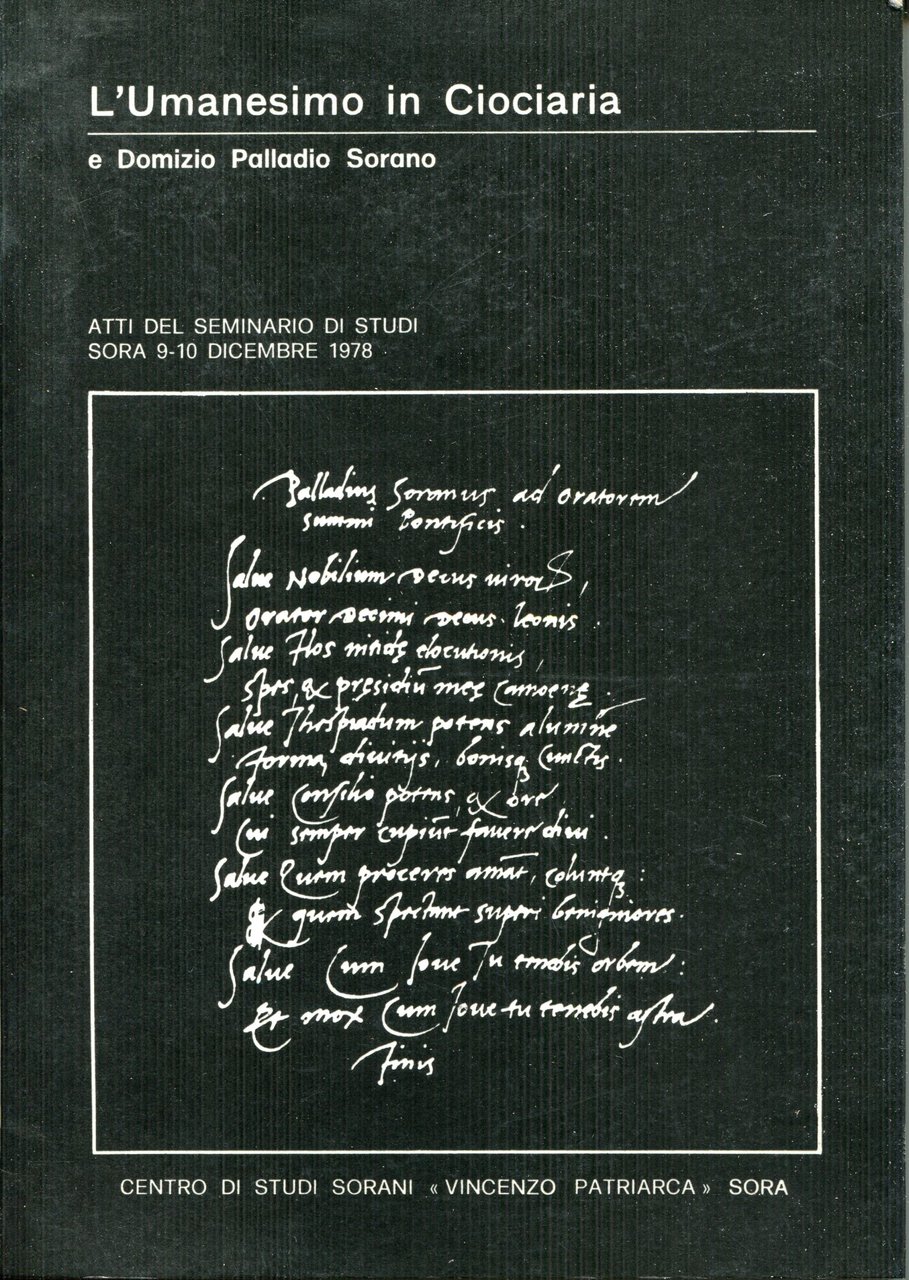 L'Umanesimo in Ciociaria
e Domizio Palladio Sorano
ATTI DEL SEMINARIO DI STUDI
SORA 9-10 DICEMBRE 1978
Palladius Soranus ad oratorem
summi Pontificis.
Salue Nobilium Decus uiroꝝ,
Orator Decimi Decus Leonis.
Salue Flos nitidę elocutionis,
Spes, & pręsidiũ meę Camoenę.
Salue Thespiadum potens alumne
Forma, diuitijs, bonisqꝫ cunctis.
Salue Consilio potens, & ore
Cui semper cupiũt fauere diui.
Salue Quem proceres amãt, coluntqꝫ:
& quem spectant superi benigniores.
Salue Cum Ioue Tu tenebis orbem:
Et mox Cum Ioue tu tenebis astra.
Finis
CENTRO DI STUDI SORANI « VINCENZO PATRIARCA » SORA